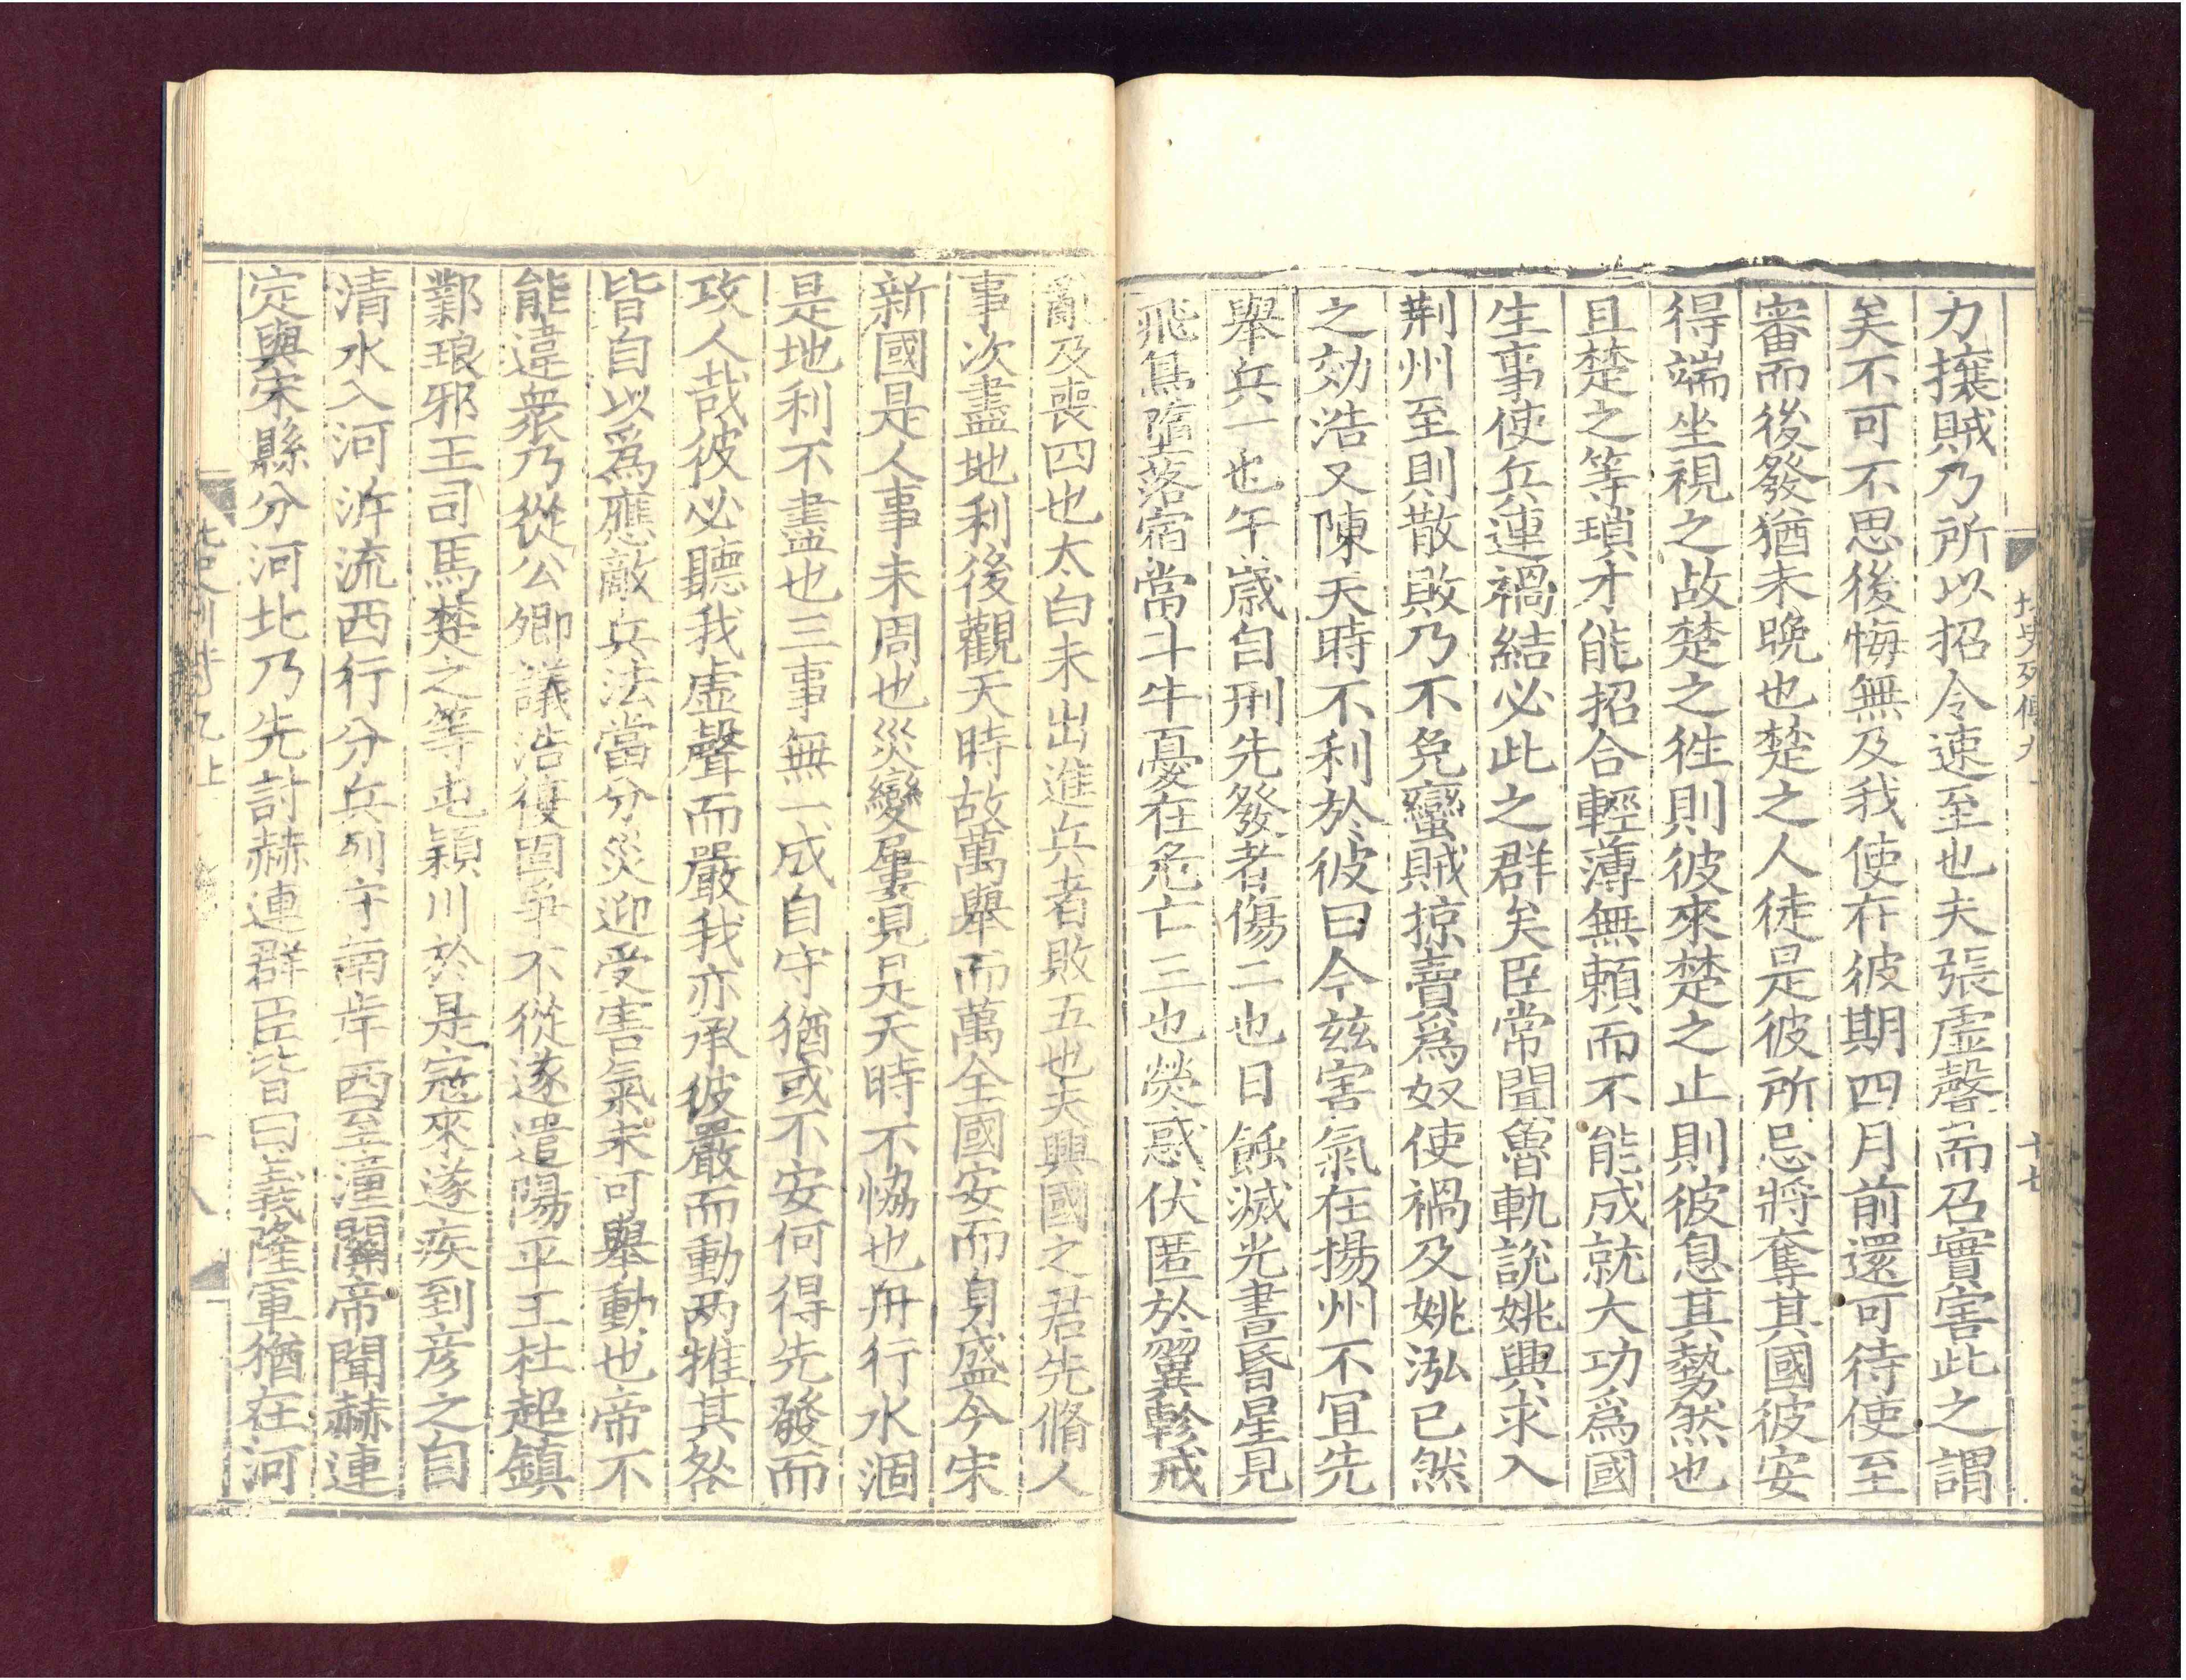 力攘賊乃所以招令速至也夫張虛聲而召實害此之謂
矣不可不思後悔無及我使在彼期四月前還可待使至
審而後發猶未晚也楚之人徒是彼所忌將奪其國彼安
得端坐視之故楚之往則彼來楚之止則彼息其勢然也
且楚之等瑣才能招合輕薄無賴而不能成就大功爲國
生事使兵連禍結必此之群矣臣常聞魯軌說姚興求入
荆州至則散敗乃不免蠻賊掠賣爲奴使禍及姚泓已然
之効浩又陳天時不利於彼曰今兹害氣在揚州不宜先
舉兵一也午歲自刑先發者傷二也日蝕滅光晝昏星見
飛鳥墮落宿當斗牛憂在危亡三也熒惑伏匿於翼軫戒
亂及喪四也太白未出進兵者敗五也夫興國之君先脩人
事次盡地利後觀天時故萬舉而萬全國安而身盛今宋
新國是人事未周也災變屢見是天時不恊也舟行水涸
是地利不盡也三事無一成自守猶或不安何得先發而
攻人哉彼必聽我虛聲而嚴我亦承彼嚴而動两推其咎
皆自以爲應敵兵法當分災迎受害氣未可舉動也帝不
能違衆乃從公卿議浩復固爭不從遂遣陽平王杜超鎮
鄴琅邪王司馬楚之等屯潁川於是寇來遂疾到彦之自
清水入河泝流西行分兵列守南岸西至潼關帝聞赫連
定與宋縣分河北乃先討赫連群臣皆曰義隆軍猶在河
北史列傳九上
十七
十八